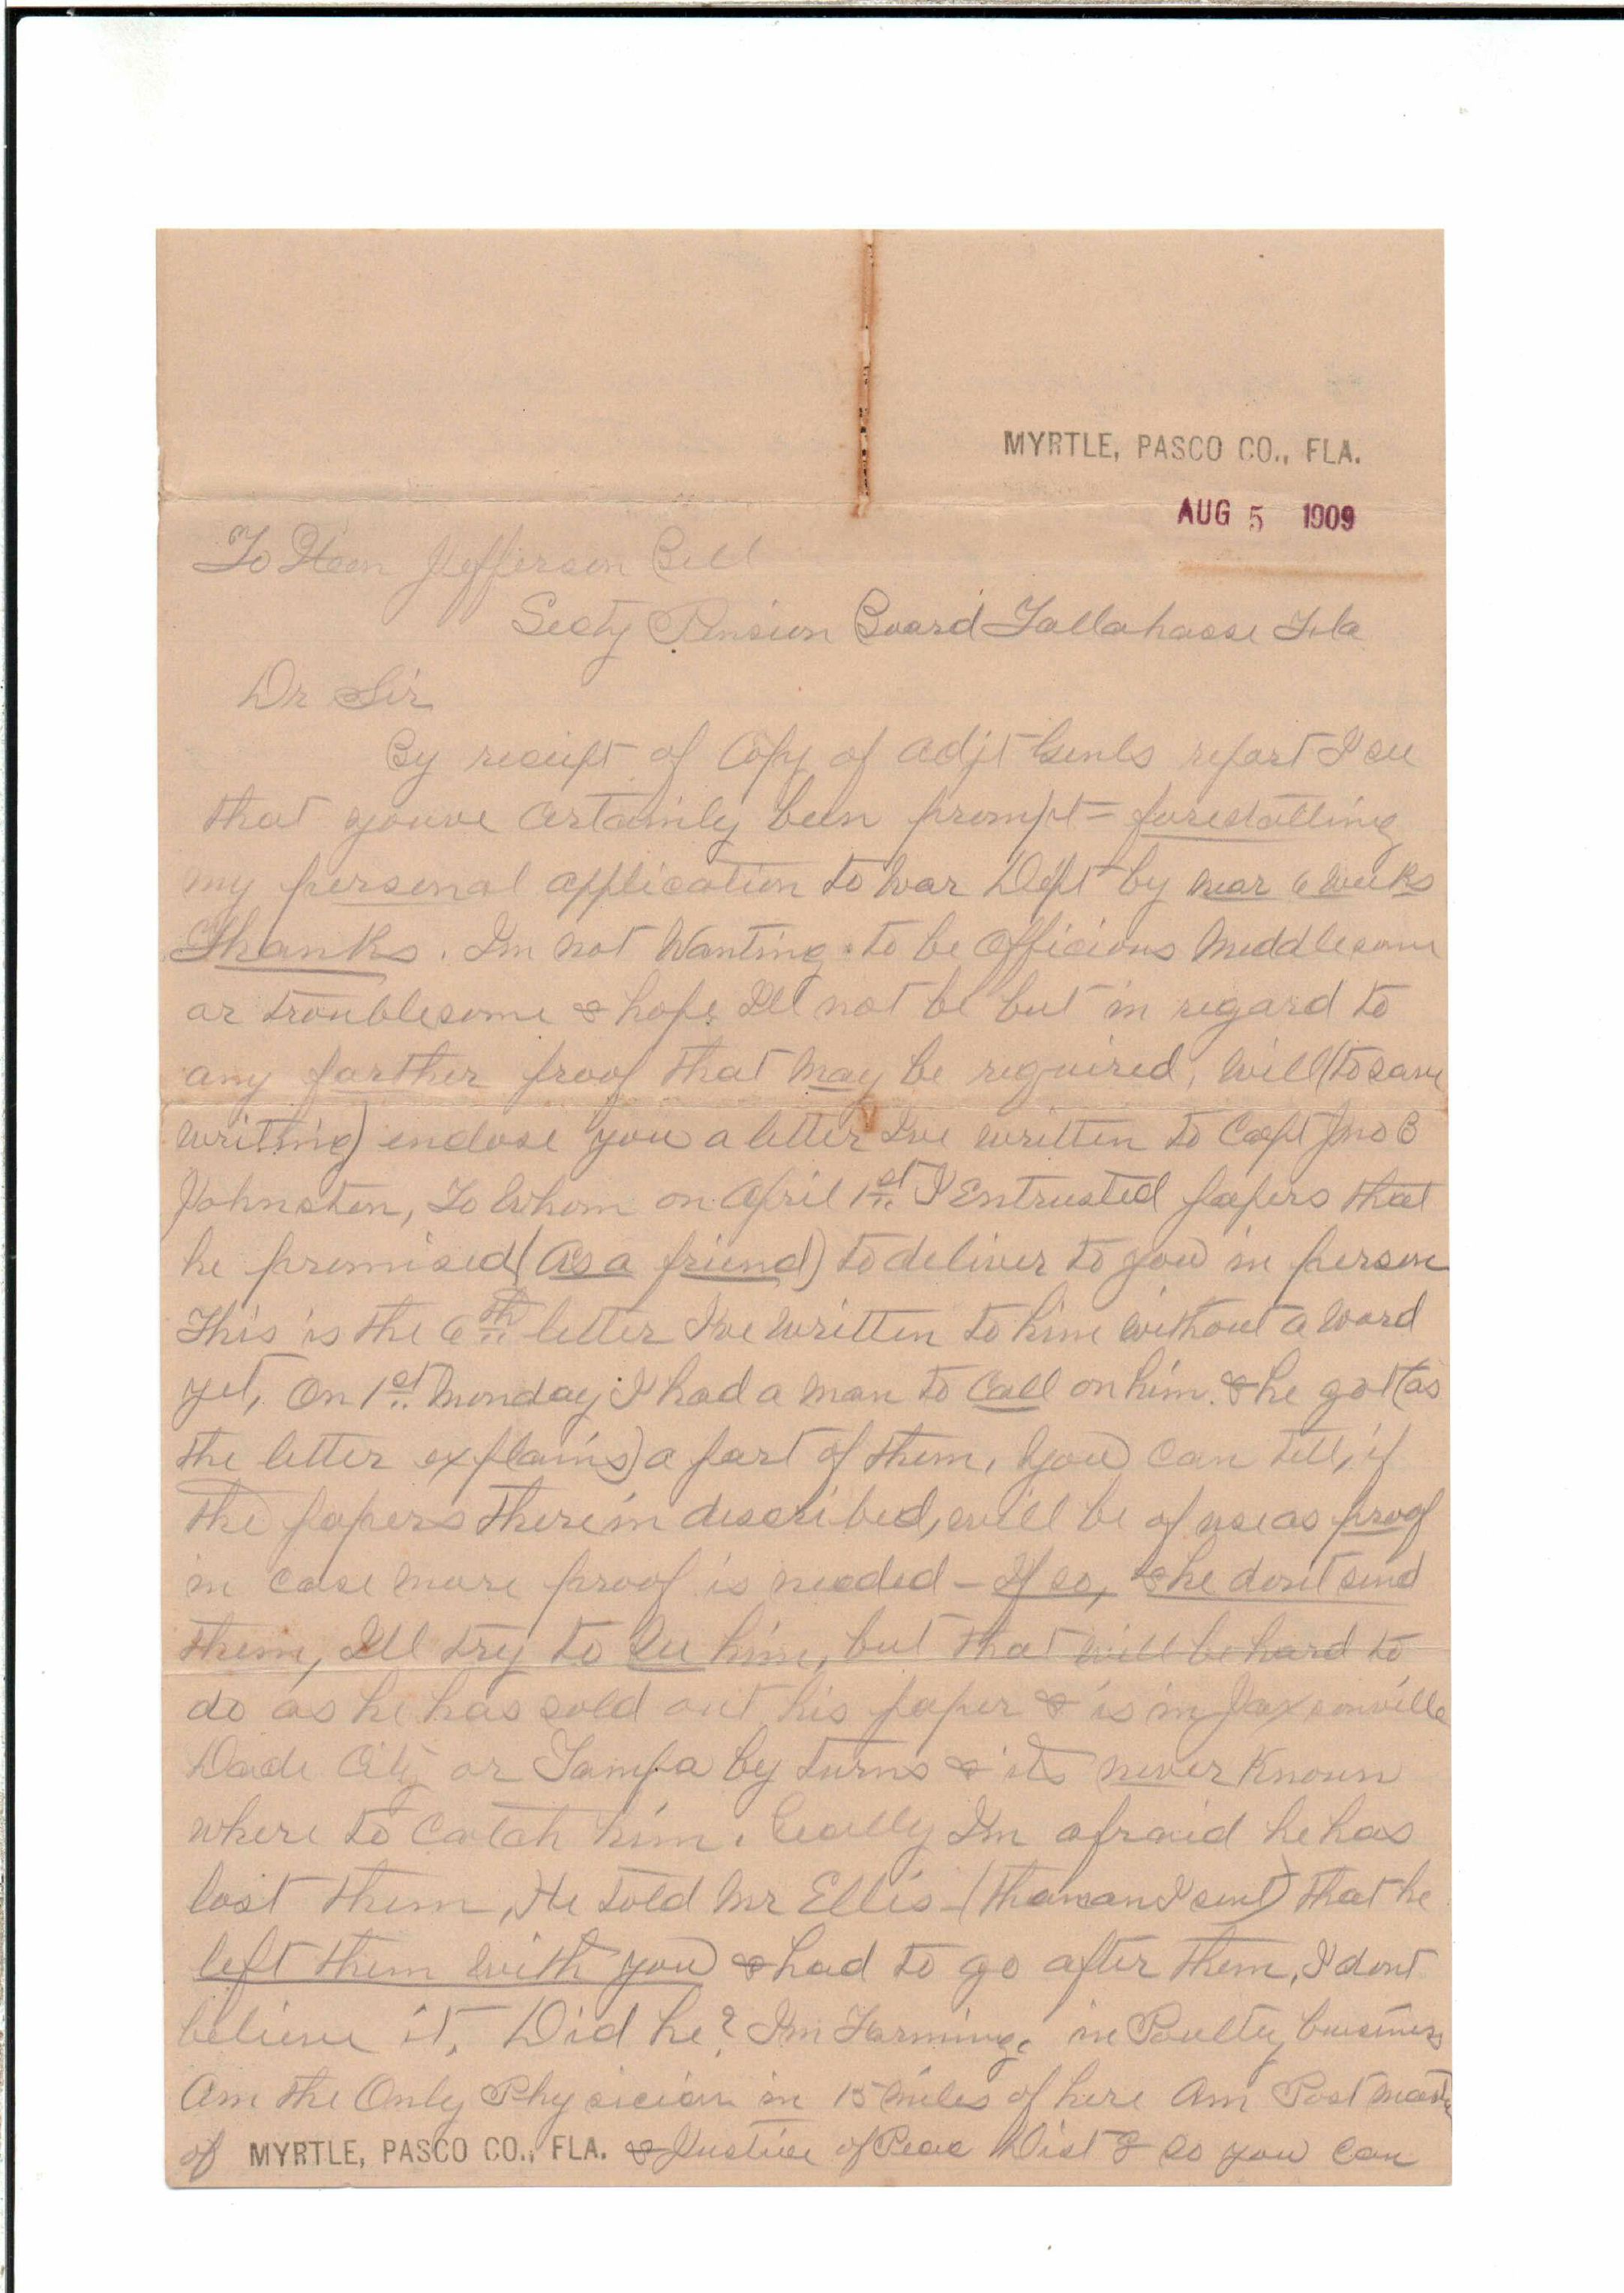 MYRTLE, PASCO CO., FLA.
AUG 5 1909
To Hon Jefferson Bell
Secty Pension Board Tallahasse Fla
Dr Sir
By reciept of Copy of adjt Genls report I see
that youve certainily been prompt = forestalling
my personal application to War Dept by near 6 weeks
Thanks. Im not Wanting to be Officious Meddlesome
or troublesome & hope I'll not be but in regard to
any farther proof that may be required, will (to save
writing) enclose you a letter I've written to Capt Jno B
Johnston, To Whom on April 1st I Entrusted papers that
he promised (as a friend) to deliver to you in person
This is the 6th letter I've written to him without a word
yet, On 1st Monday I had a man to Call on him. & he got (as
the letter explains) a part of them, You can tell, if
the papers therein described, will be of use as proof
in case more proof is needed - If so, & he dont send
them, I'll try to see him, but that will be hard to
do as he has sold out his paper & is in Jaxsonville
Dade City or Tampa by turns & its never Known
where to Catch him. Really I'm afraid he has
lost them, He told Mr Ellis - (the man I sent) that he
left them with you & had to go after them, I dont
believe it. Did he? I'm Farming. in Poultry business
Am the Only Physician in 15 miles of here Am Post Master
of MYRTLE, PASCO CO., FLA. & Justice of Peace Dist 8 so you can